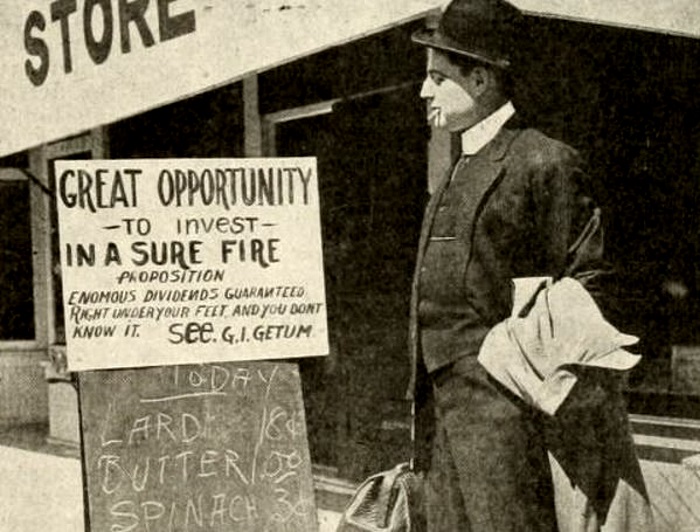 STORE
GREAT OPPORTUNITY
-TO INVEST-
IN A SURE FIRE
PROPOSITION
ENOMOUS DIVIDENDS GUARANTEED
RIGHT UNDER YOUR FEET AND YOU DONT
KNOW IT. SEE. G.I. GETUM.
TODAY
LARD 18¢
BUTTER
SPINACH 3¢